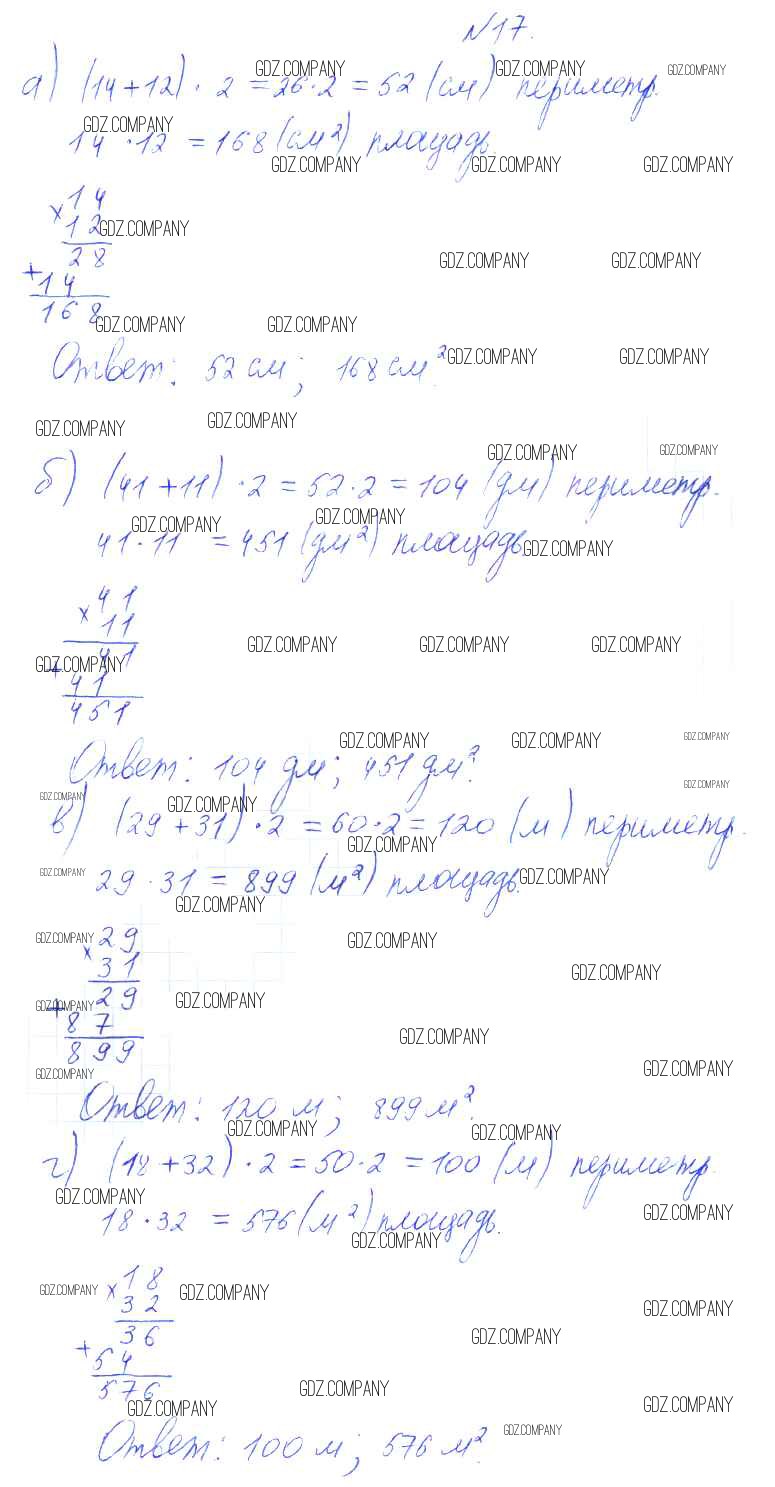 №17.
а) (14+12) · 2 = 26·2 = 52 (см) периметр.
14 · 12 = 168 (см²) площадь.
× 14
12
28
+ 14
168
Ответ: 52 см; 168 см².
б) (41+11) · 2 = 52·2 = 104 (дм) периметр.
41·11 = 451 (дм²) площадь.
× 41
11
41
+ 41
451
Ответ: 104 дм; 451 дм².
в) (29+31) · 2 = 60·2 = 120 (м) периметр.
29 · 31 = 899 (м²) площадь.
× 29
31
29
+ 87
899
Ответ: 120 м; 899 м².
г) (18+32) · 2 = 50·2 = 100 (м) периметр.
18 · 32 = 576 (м²) площадь.
× 18
32
36
+ 54
576
Ответ: 100 м; 576 м².
GDZ.COMPANY